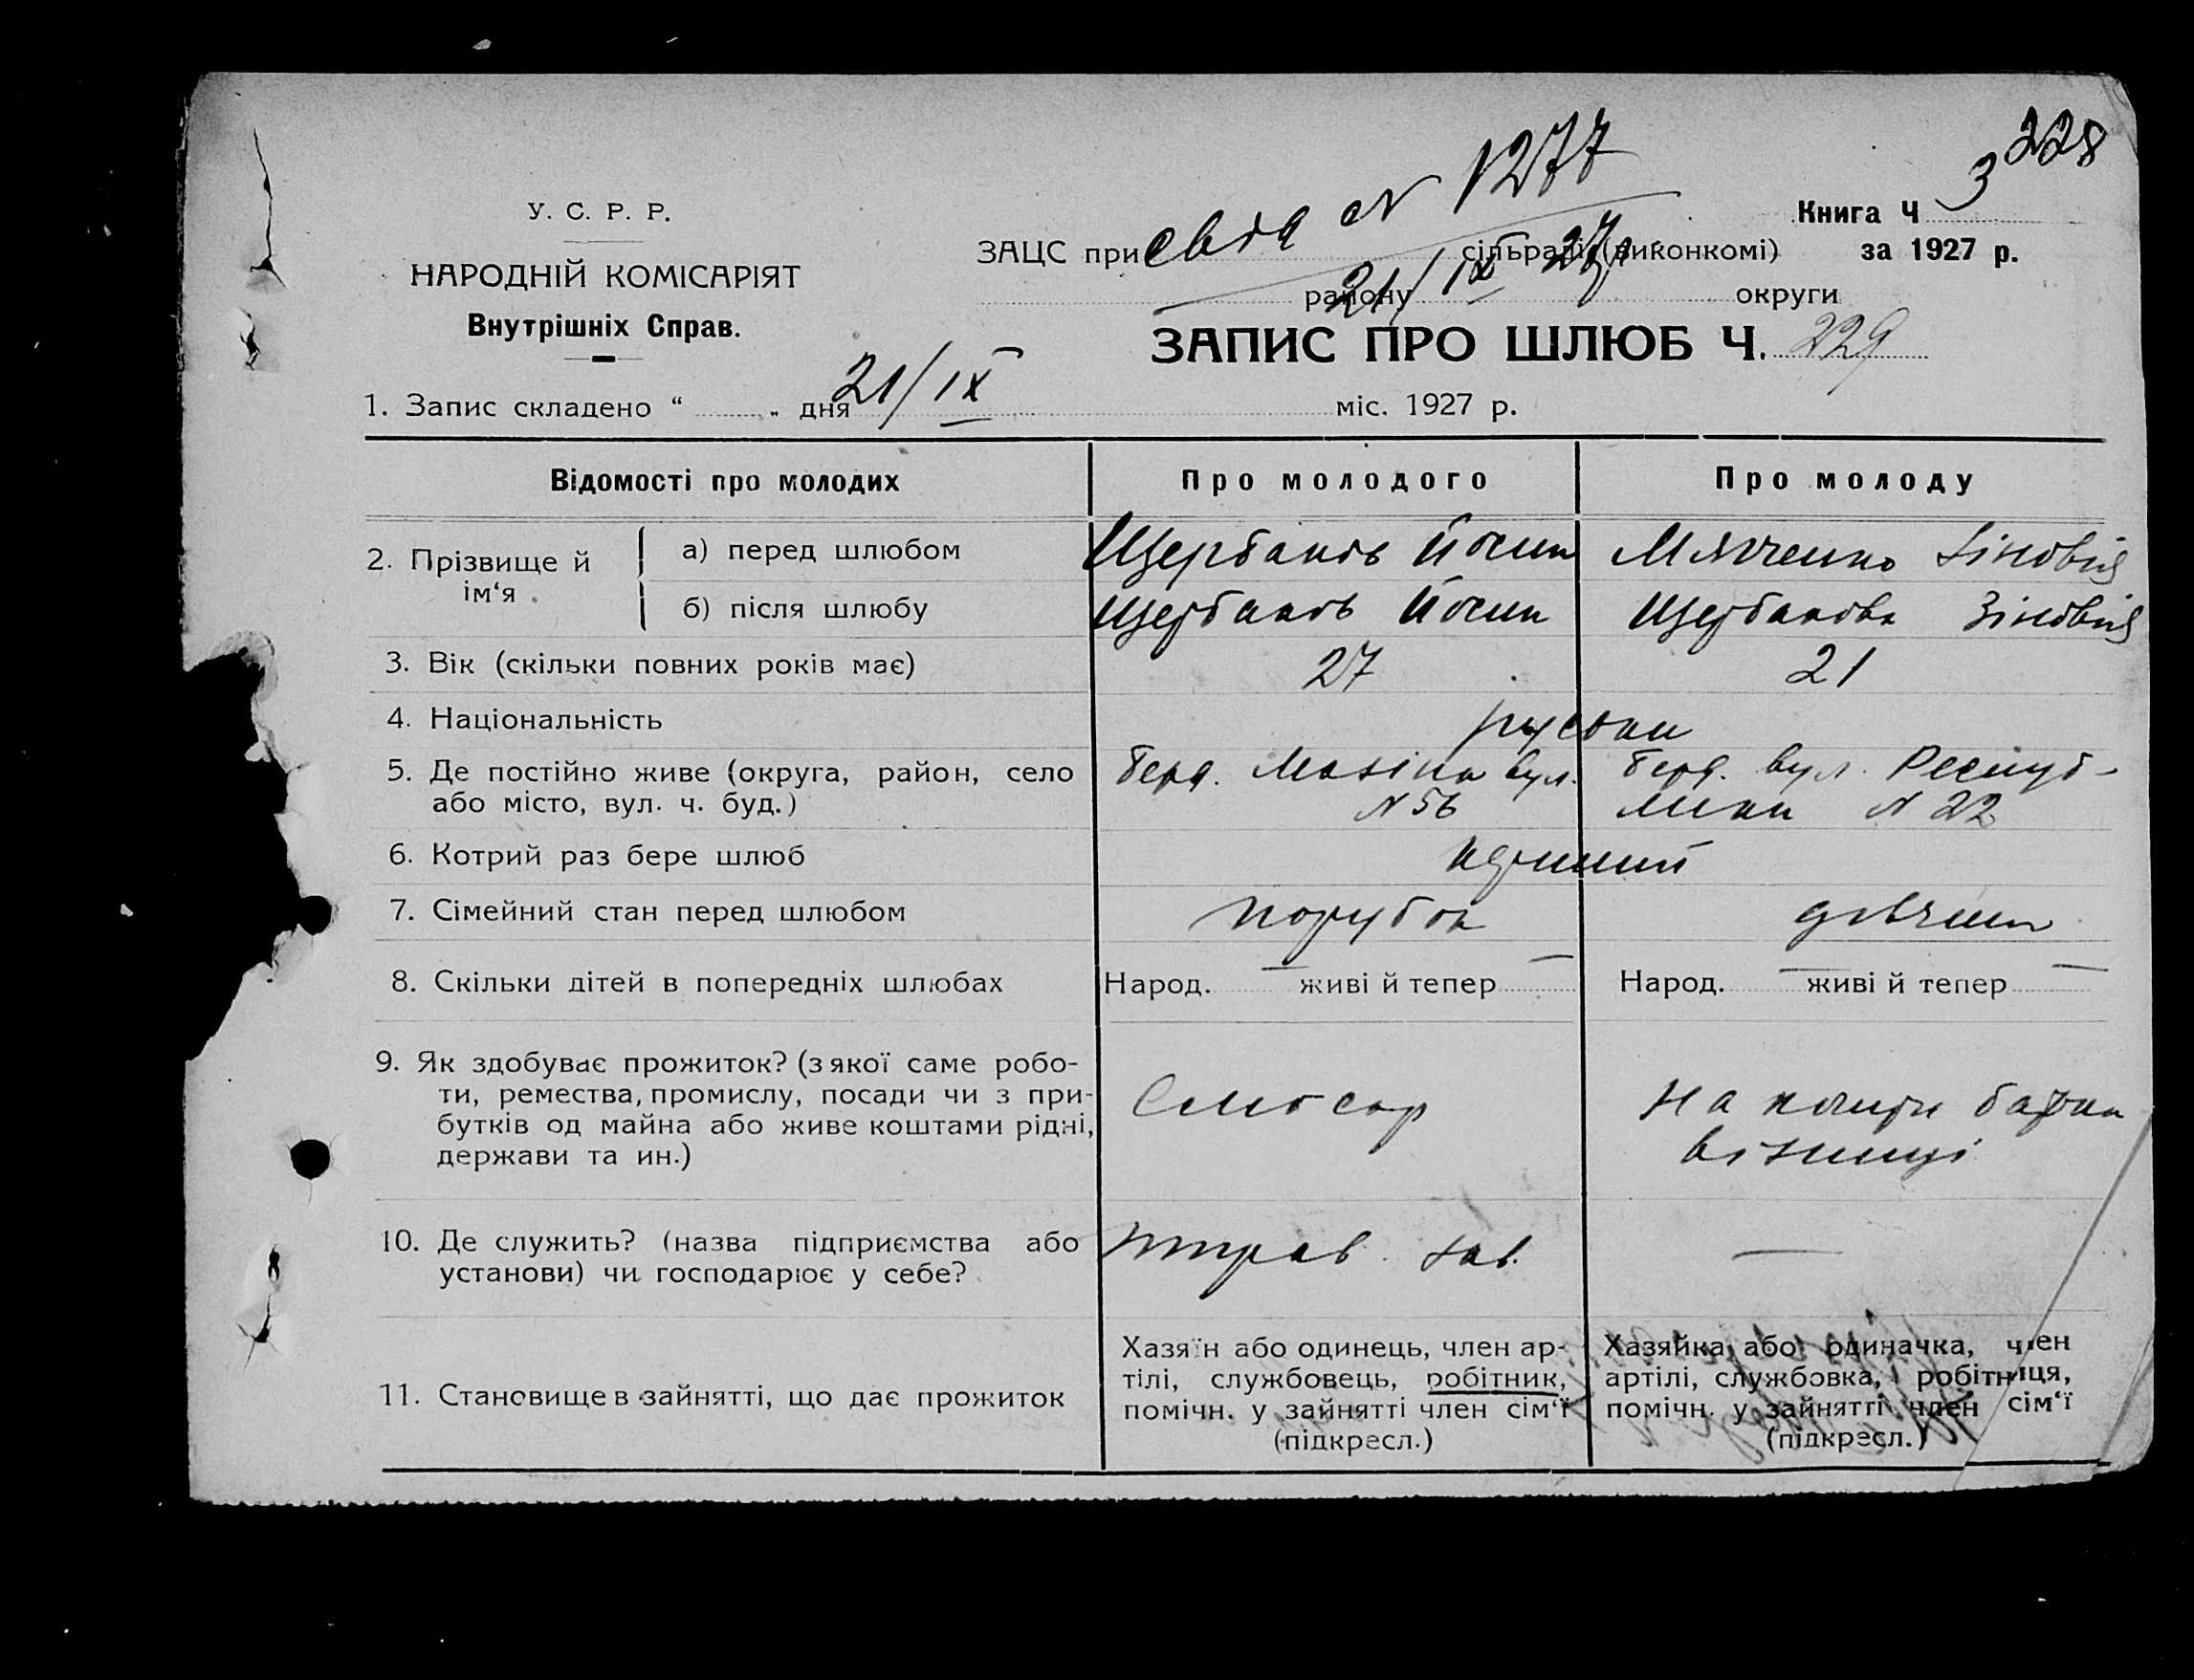 228
У. С. Р. Р.
НАРОДНІЙ КОМІСАРІЯТ
Внутрішніх Справ.
№ 1277
Книга Ч 3
ЗАЦС при сільраді (виконкомі) за 1927 р.
21/IX 27р
району округи
ЗАПИС ПРО ШЛЮБ Ч. 229
1. Запис складено “ „ дня 21/IX міс. 1927 р.
Відомості про молодих Про молодого Про молоду
2. Прізвище й ім‘я а) перед шлюбом Щербаков Йосип Зіновія
б) після шлюбу Щербаков Йосип Щербакова Зіновія
3. Вік (скільки повних років має) 27 21
4. Національність руські
5. Де постійно живе (округа, район, село Берд. вул. Берд. вул. Респуб-
або місто, вул. ч. буд.) № 56 лики № 22
6. Котрий раз бере шлюб перший
7. Сімейний стан перед шлюбом порубок дівчина
8. Скільки дітей в попередніх шлюбах Народ. — живі й тепер — Народ. — живі й тепер —
9. Як здобуває прожиток? (з якої саме робо-
ти, ремества, промислу, посади чи з при- Слюсар На кошти батька
бутків од майна або живе коштами рідні,
держави та ин.)
10. Де служить? (назва підприємства або зав. —
установи) чи господарює у себе?
Хазяїн або одинець, член ар- Хазяйка або одиначка, член
тілі, службовець, робітник, артілі, службовка, робітниця,
11. Становище в зайнятті, що дає прожиток помічн. у зайнятті член сім‘ї помічн. у зайнятті член сім‘ї
(підкресл.) (підкресл.)